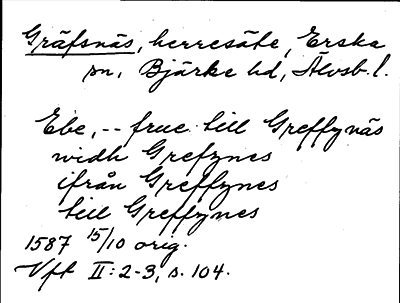 Gräfsnäs, herresäte, Erska
sn, Bjärke hd, Älvsb. l.
Ebe, -- frue till Greffynäs
widh Grefynes
ifrån Greffynes
till Greffynes
1587 15/10 orig.
Vft II: 2-3, s. 104.